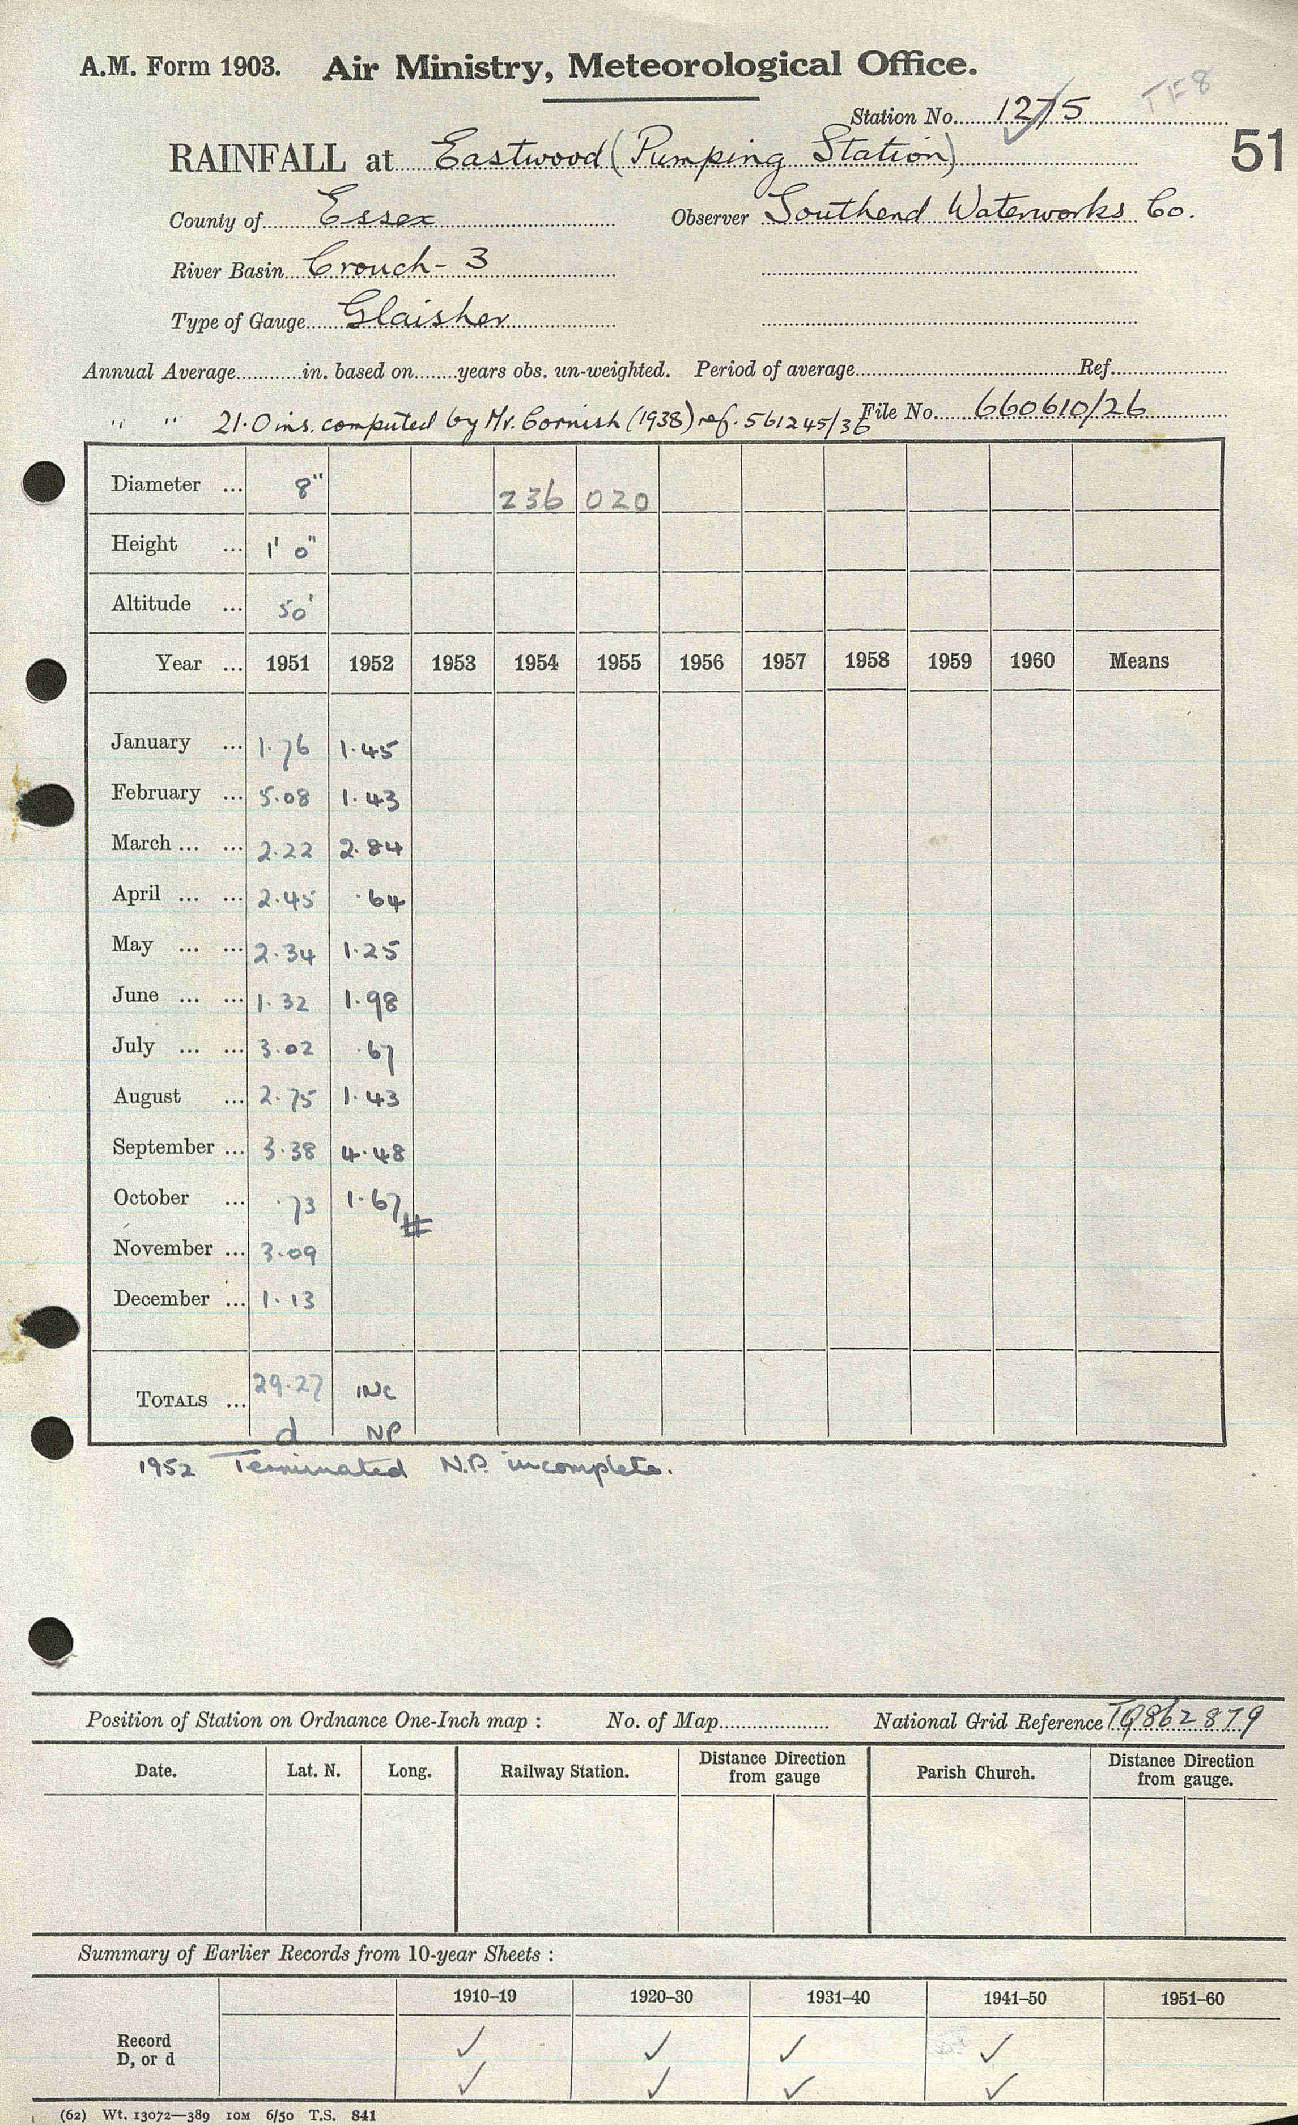 A.M. Form 1903. Air Ministry, Meteorological Office.
Station No. 1275 TF8
51
RAINFALL at Eastwood (Pumping Station)
County of Essex Observer Southend Waterworks Co.
River Basin Crouch - 3
Type of Gauge Glaisher
Annual Average in. based on years obs. un-weighted. Period of average Ref.
" " 21.0 ins. computed by Mr. Cornish (1938) ref. 561245/36 File No. 660610/26
Diameter ... 8" 236 020
Height ... 1' 0"
Altitude ... 50'
Year ... 1951 1952 1953 1954 1955 1956 1957 1958 1959 1960 Means
January ... 1.76 1.45
February ... 5.08 1.43
March ... ... 2.22 2.84
April ... ... 2.45 .64
May ... ... 2.34 1.25
June ... ... 1.32 1.98
July ... ... 3.02 .67
August ... 2.75 1.43
September ... 3.38 4.48
October ... .73 1.67
November ... 3.09
December ... 1.13
TOTALS ... 29.27 INC
d NP
1952 Terminated N.P. incomplete.
Position of Station on Ordnance One-Inch map : No. of Map National Grid Reference TQ862879
Date. Lat. N. Long. Railway Station. Distance Direction from gauge Parish Church. Distance Direction from gauge.
Summary of Earlier Records from 10-year Sheets :
1910–19 1920–30 1931–40 1941–50 1951–60
Record ✓ ✓ ✓ ✓
D, or d ✓ ✓ ✓ ✓
(62) Wt. 13072—389 10M 6/50 T.S. 841